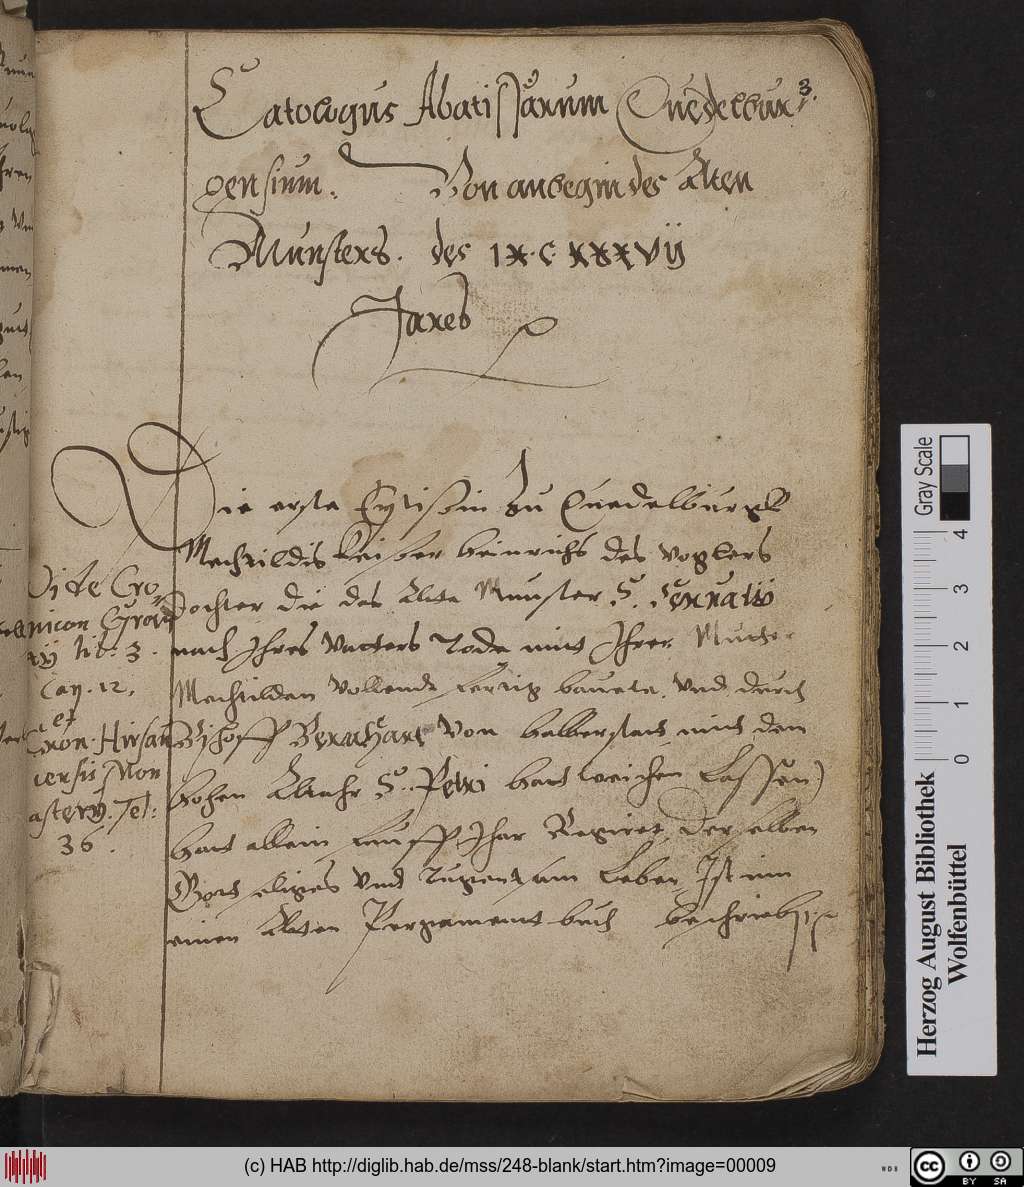 3.
Catologus Abatissarum Quedelbur
gensium. Von anbegin des Alten
Munsters. des IX.C XXXVij
Jares
Die erste Eptissin zu Quedelburgk
Mechtildis Keisser Heinrichs des Voglers
Dochter die das Alte Munster S. Seruatij
nach Ihres Vatters Tode mit Ihrer Mutter
Mechtilden Vollendt fertig bauete, Vnd durch
Bischoff Bernhart Von Halberstat mit dem
hohen Altahr S. Petri hatt weichen Lassen)
hatt allein Jhar Regiret, Derselben
Gott seliges Vnd Tugentsam Leben Ist im
einen Alten Pergament buch beschrieb
Vide Cro
nicon
lib: 3.
Cap. 12,
et
Cron. Hirsau
iensis Mon
astery. fol:
36.
Gray Scale
0 1 2 3 4
Herzog August Bibliothek
Wolfenbüttel
(c) HAB http://diglib.hab.de/mss/248-blank/start.htm?image=00009
WDB
cc BY SA